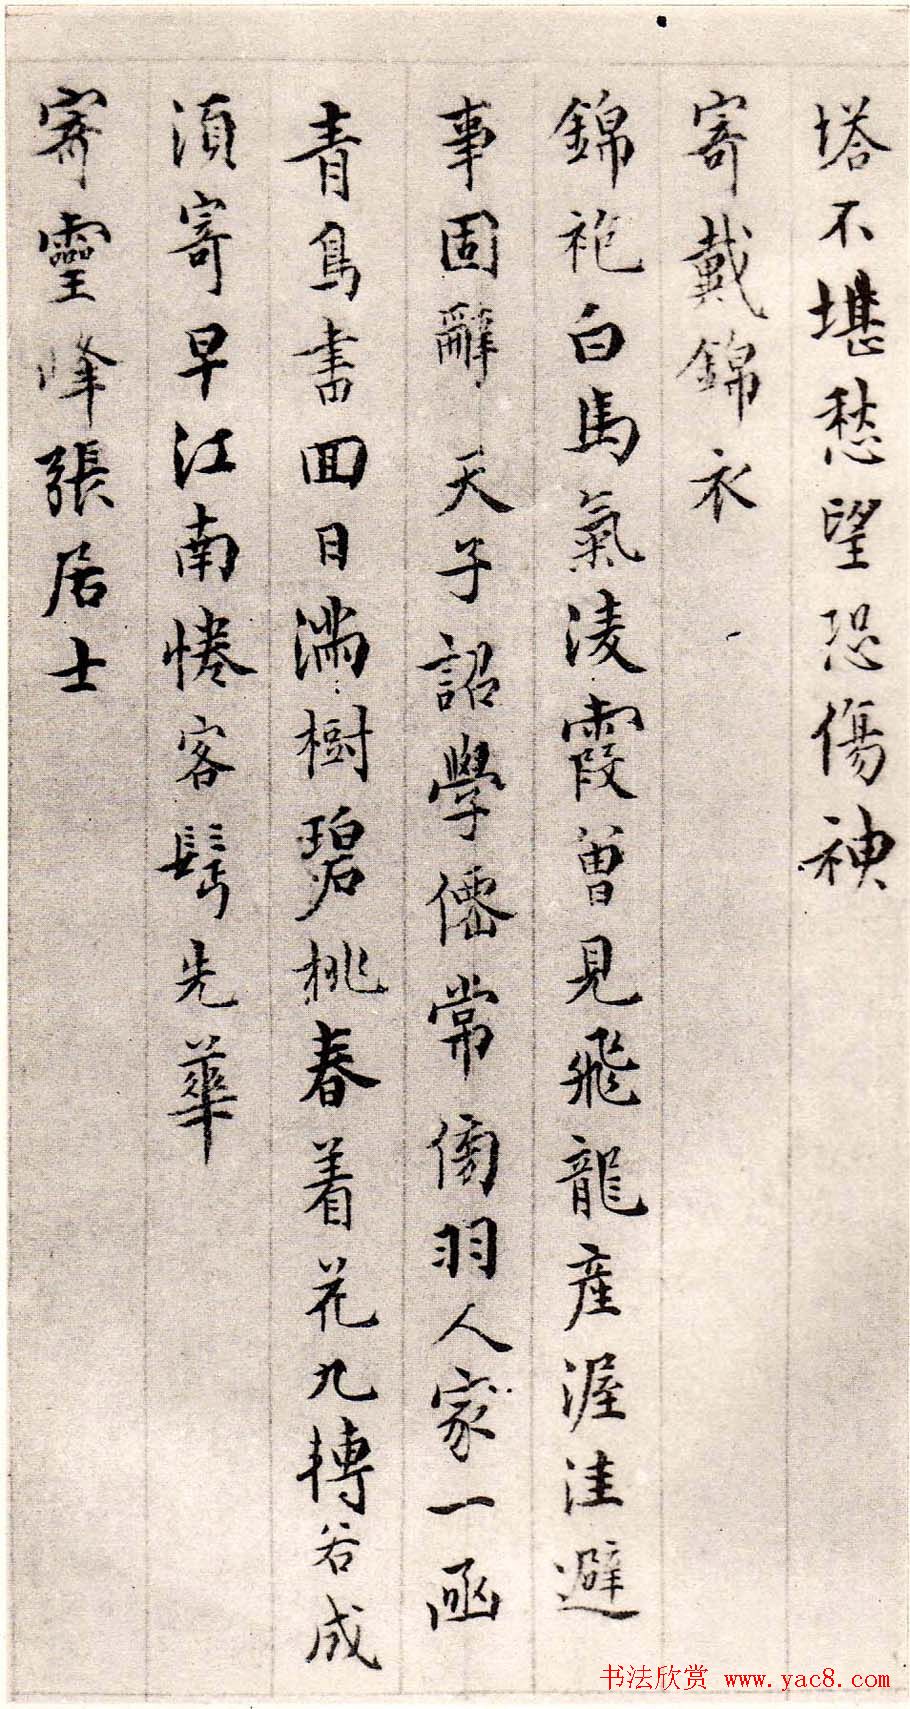 塔不堪愁望恐傷神
寄戴錦衣
錦袍白馬氣淩霞曽見飛龍產渥洼避
事固辭天子詔學僊常傍羽人家一函
青鳥書囬日滿樹碧桃春着花九轉若成
須寄早江南惓客髩先華
寄靈峰張居士
书法欣赏 www.yac8.com